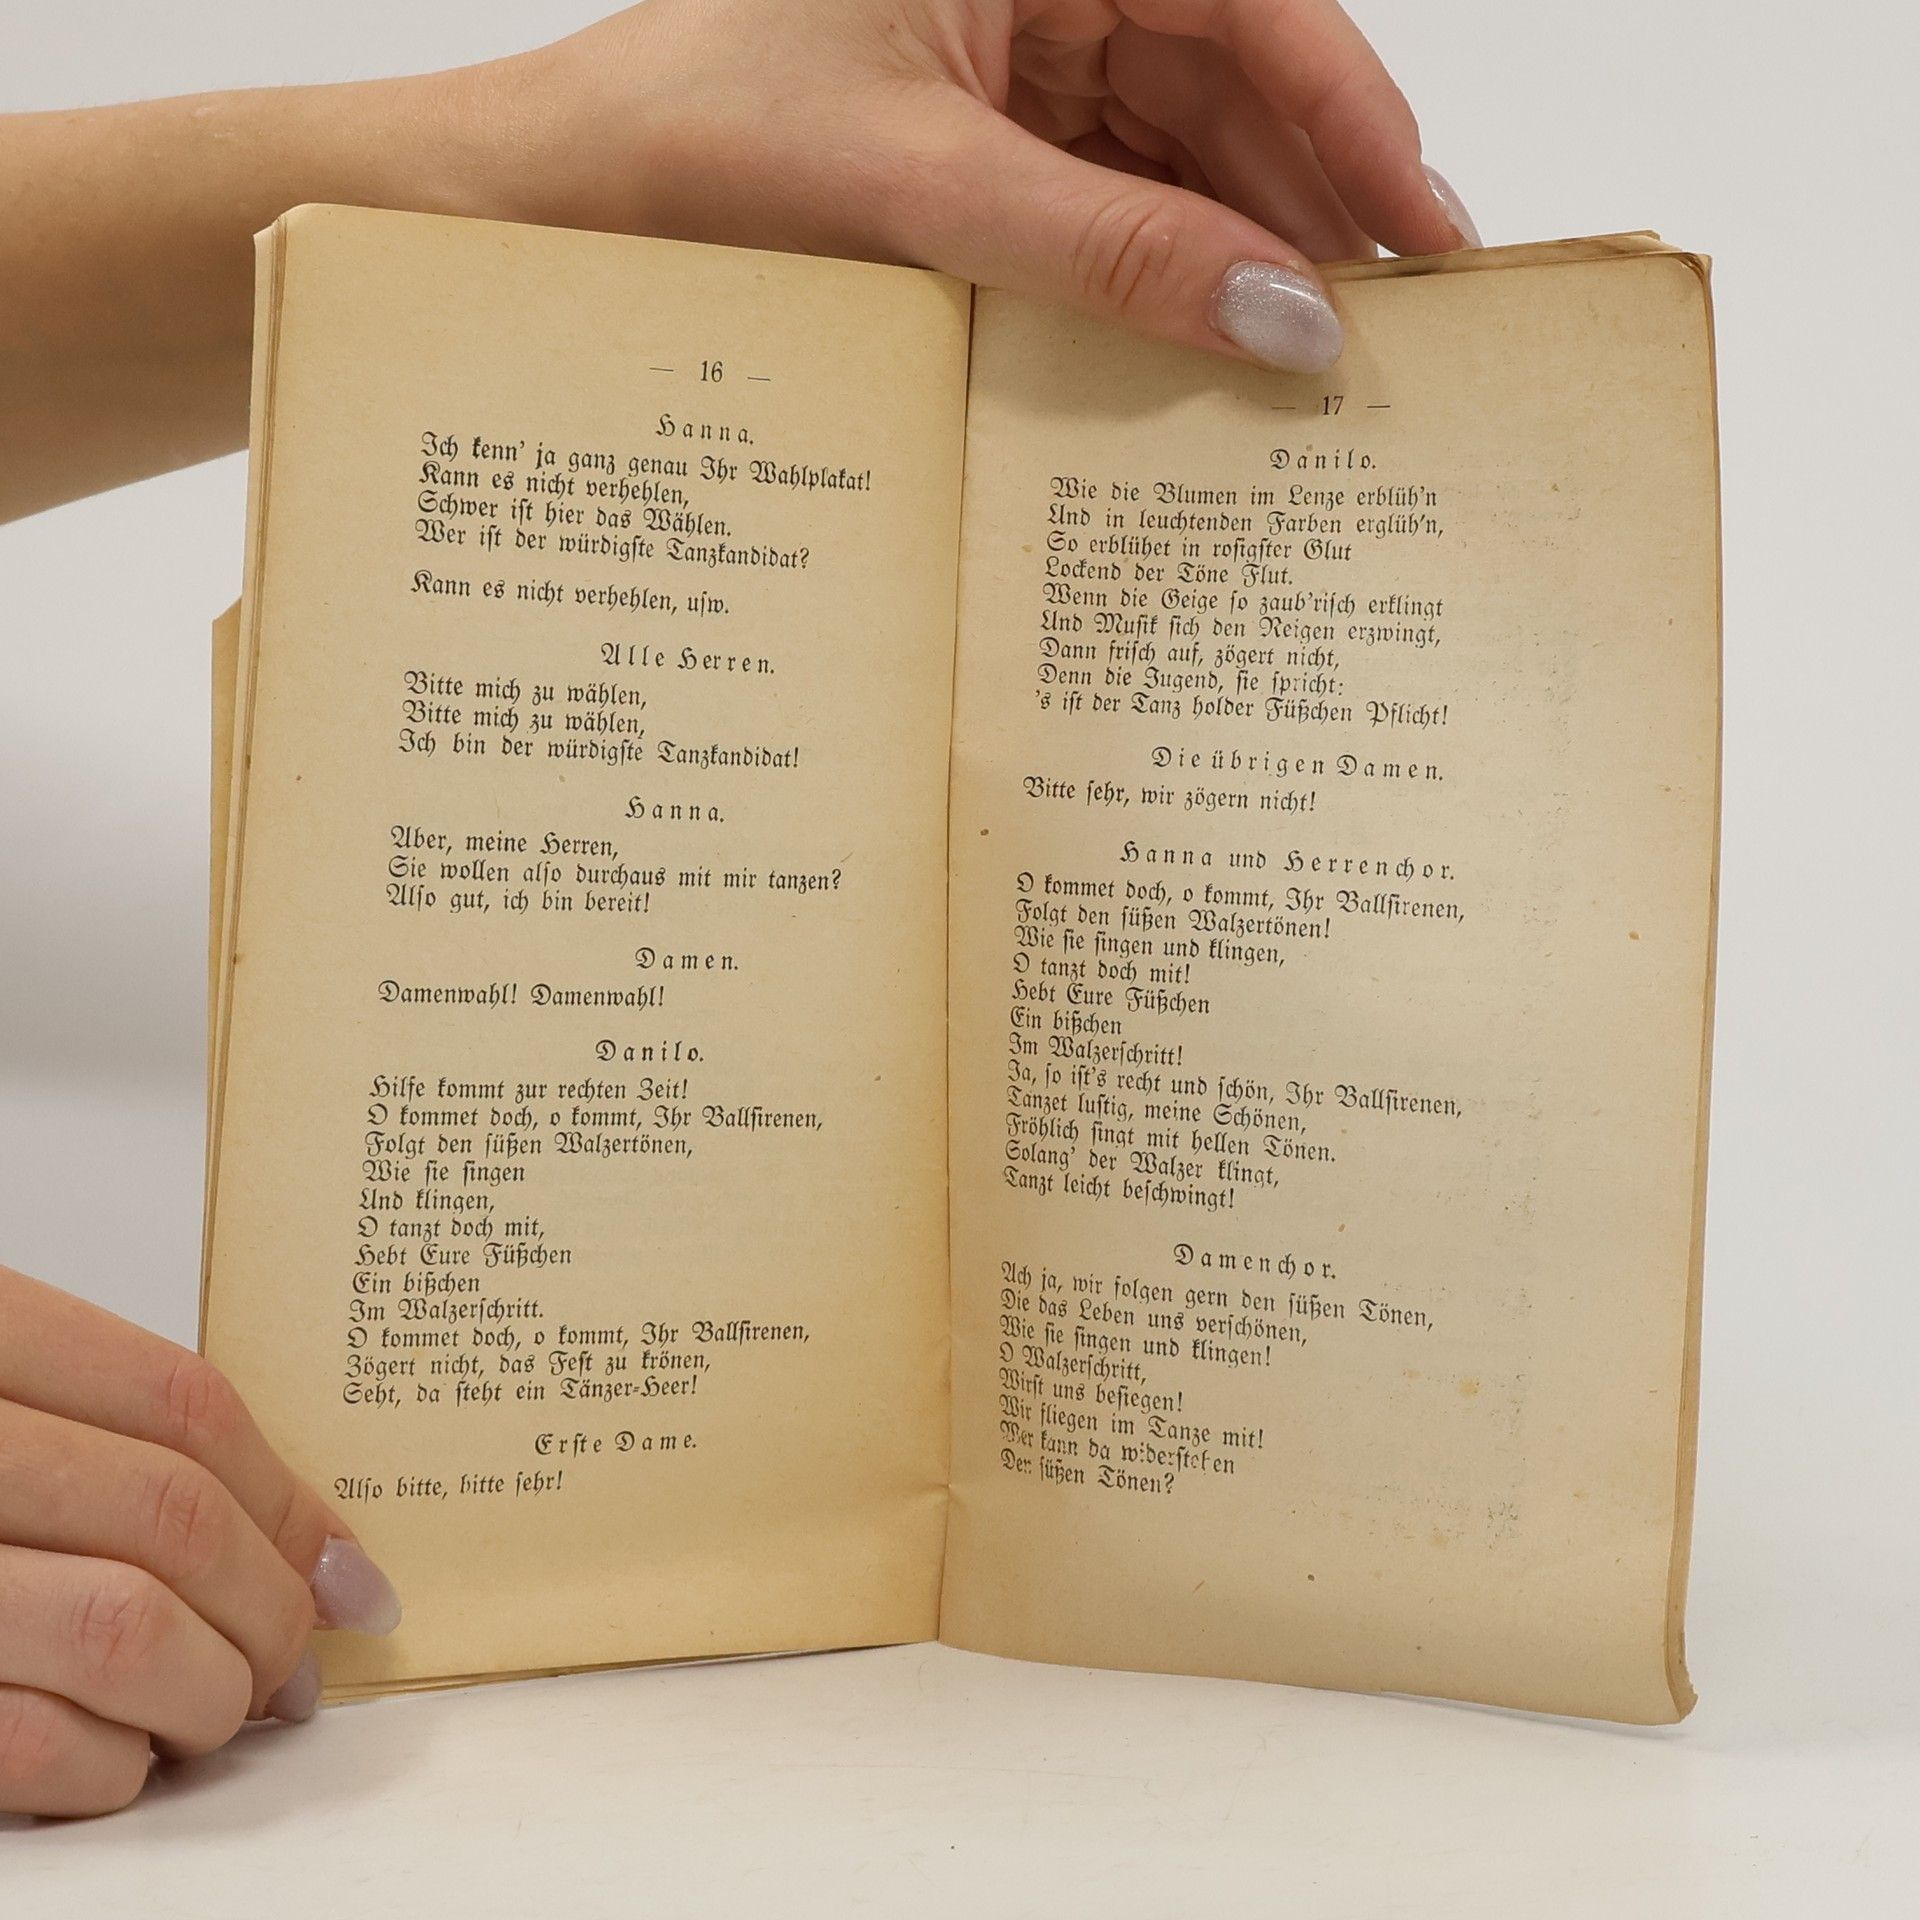 — 16 —
Hanna.
Ich kenn' ja ganz genau Ihr Wahlplakat!
Kann es nicht verhehlen,
Schwer ist hier das Wählen.
Wer ist der würdigste Tanzkandidat?
Kann es nicht verhehlen, usw.
Alle Herren.
Bitte mich zu wählen,
Bitte mich zu wählen,
Ich bin der würdigste Tanzkandidat!
Hanna.
Aber, meine Herren,
Sie wollen also durchaus mit mir tanzen?
Also gut, ich bin bereit!
Damen.
Damenwahl! Damenwahl!
Danilo.
Hilfe kommt zur rechten Zeit!
O kommet doch, o kommt, Ihr Ballsirenen,
Folgt den süßen Walzertönen,
Wie sie singen
Und klingen,
O tanzt doch mit,
Hebt Eure Füßchen
Ein bißchen
Im Walzerschritt.
O kommet doch, o kommt, Ihr Ballsirenen,
Zögert nicht, das Fest zu krönen,
Seht, da steht ein Tänzer-Heer!
Erste Dame.
Also bitte, bitte sehr!
— 17 —
Danilo.
Wie die Blumen im Lenze erblüh'n
Und in leuchtenden Farben erglüh'n,
So erblühet in rosigster Glut
Lockend der Töne Flut.
Wenn die Geige so zaub'risch erklingt
Und Musik sich den Reigen erzwingt,
Dann frisch auf, zögert nicht,
Denn die Jugend, sie spricht:
's ist der Tanz holder Füßchen Pflicht!
Die übrigen Damen.
Bitte sehr, wir zögern nicht!
Hanna und Herrenchor.
O kommet doch, o kommt, Ihr Ballsirenen,
Folgt den süßen Walzertönen!
Wie sie singen und klingen,
O tanzt doch mit!
Hebt Eure Füßchen
Ein bißchen
Im Walzerschritt!
Ja, so ist's recht und schön, Ihr Ballsirenen,
Tanzet lustig, meine Schönen,
Fröhlich singt mit hellen Tönen.
Solang' der Walzer klingt,
Tanzt leicht beschwingt!
Damenchor.
Ach ja, wir folgen gern den süßen Tönen,
Die das Leben uns verschönen,
Wie sie singen und klingen!
O Walzerschritt,
Wirst uns besiegen!
Wir fliegen im Tanze mit!
Wer kann da widerstehen
Den süßen Tönen?